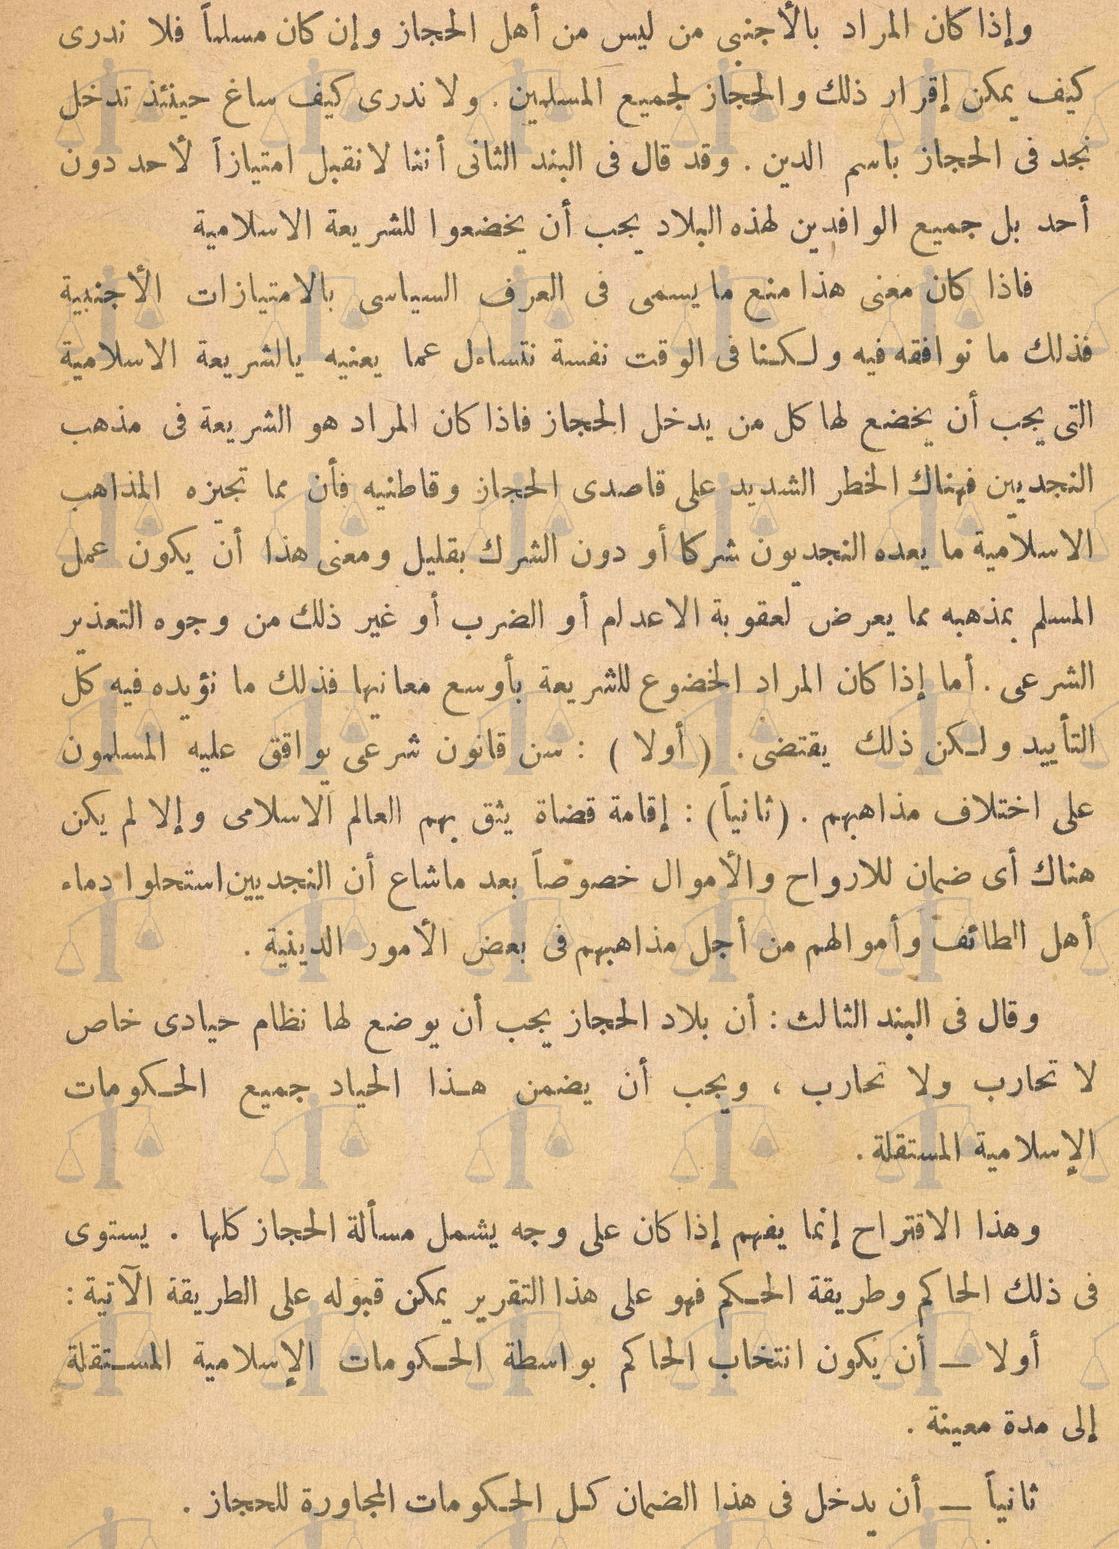 وإذا كان المراد بالأجنبى من ليس من أهل الحجاز وإن كان مسلماً فلا ندرى
كيف يمكن إقرار ذلك والحجاز لجميع المسلمين . ولا ندرى كيف ساغ حينئذ تدخل
نجد فى الحجاز باسم الدين . وقد قال فى البند الثانى أننا لا نقبل امتيازاً لأحد دون
أحد بل جميع الوافدين لهذه البلاد يجب أن يخضعوا للشريعة الاسلامية
فاذا كان معنى هذا منع ما يسمى فى العرف السياسى بالامتيازات الأجنبية
فذلك ما نوافقه فيه ولكننا فى الوقت نفسة نتساءل عما يعنيه يالشريعة الاسلامية
التى يجب أن يخضع لها كل من يدخل الحجاز فاذا كان المراد هو الشريعة فى مذهب
النجديين فهناك الخطر الشديد على قاصدى الحجاز وقاطنيه فأن مما تجيزه المذاهب
الاسلامية ما يعده النجديون شركا أو دون الشرك بقليل ومعنى هذا أن يكون عمل
المسلم بمذهبه مما يعرض لعقوبة الاعدام أو الضرب أو غير ذلك من وجوه التعذير
الشرعى . أما إذا كان المراد الخضوع للشريعة بأوسع معانيها فذلك ما نؤيده فيه كل
التأييد ولكن ذلك يقتضى . ( أولا ) : سن قانون شرعى يوافق عليه المسلمون
على اختلاف مذاهبهم . ( ثانياً ) : إقامة قضاة يثق بهم العالم الاسلامى وإلا لم يكن
هناك أى ضمان للارواح والأموال خصوصاً بعد ماشاع أن النجديين استحلوا دماء
أهل الطائف وأموالهم من أجل مذاهبهم فى بعض الأمور الدينية .
وقال فى البند الثالث : أن بلاد الحجاز يجب أن يوضع لها نظام حيادى خاص
لا تحارب ولا تحارب ، ويجب أن يضمن هذا الحياد جميع الحكومات
الإسلامية المستقلة .
وهذا الاقتراح إنما يفهم إذا كان على وجه يشمل مسألة الحجاز كلها . يستوى
فى ذلك الحاكم وطريقة الحكم فهو على هذا التقرير يمكن قبوله على الطريقة الآتية :
أولا — أن يكون انتخاب الحاكم بواسطة الحكومات الإسلامية المستقلة
إلى مدة معينة .
ثانياً — أن يدخل فى هذا الضمان كل الحكومات المجاورة للحجاز .